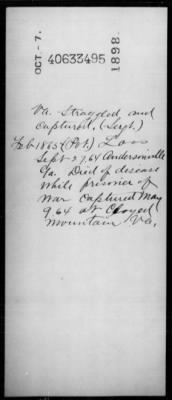 OCT.-7.
40633495
1898.
Va. Stragded and
Captured, (Sept.)
Feb 1865 (Pvt.) Loss
Sept 27, 64 Andersonville
Ga. Died of disease
While prisoner of
War Captured May
9. 64 at Cloyed
Mountain Va.